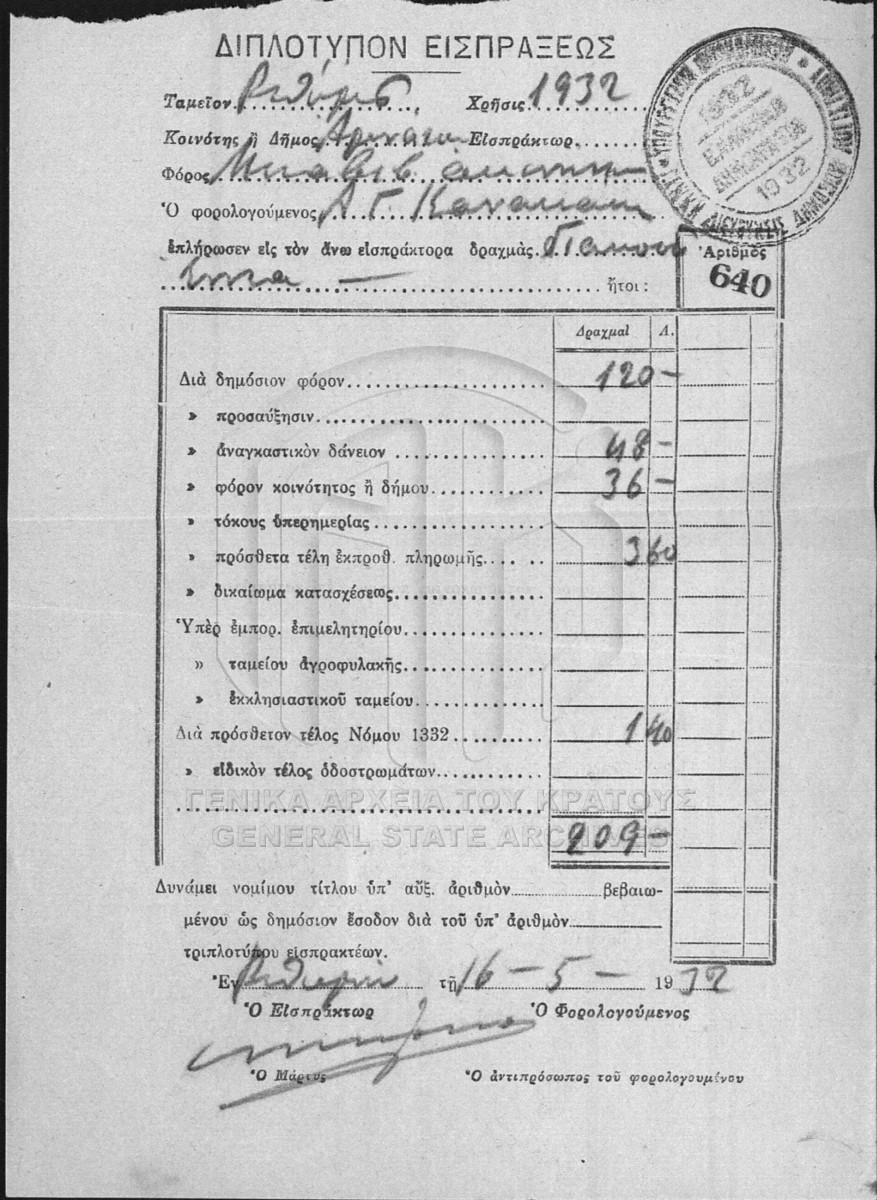 ΔΙΠΛΟΤΥΠΟΝ ΕΙΣΠΡΑΞΕΩΣ
Ταμεῖον Χρῆσις 1932
Κοινότης ἢ Δῆμος Εἰσπράκτωρ
Φόρος
Ὁ φορολογούμενος Α. Γ.
ἐπλήρωσεν εἰς τὸν ἄνω εἰσπράκτορα δραχμὰς
ἤτοι :
Ἀριθμὸς
640
1932
ΕΛΛΗΝΙΚΗ
ΔΗΜΟΚΡΑΤΙΑ
1932
Δραχμαὶ Λ.
Διὰ δημόσιον φόρον 120 -
» προσαύξησιν
» ἀναγκαστικὸν δάνειον 48 -
» φόρον κοινότητος ἢ δήμου 36 -
» τόκους ὑπερημερίας
» πρόσθετα τέλη ἐκπροθ. πληρωμῆς 3 60
» δικαίωμα κατασχέσεως
Ὑπὲρ ἐμπορ. ἐπιμελητηρίου
» ταμείου ἀγροφυλακῆς
» ἐκκλησιαστικοῦ ταμείου
Διὰ πρόσθετον τέλος Νόμου 1332 1 40
» εἰδικὸν τέλος ὁδοστρωμάτων
ΓΕΝΙΚΑ ΑΡΧΕΙΑ ΤΟΥ ΚΡΑΤΟΥΣ
GENERAL STATE ARCHIVES
209 -
Δυνάμει νομίμου τίτλου ὑπ' αὔξ. ἀριθμὸν βεβαιω-
μένου ὡς δημόσιον ἔσοδον διὰ τοῦ ὑπ' ἀριθμὸν
τριπλοτύπου εἰσπρακτέων.
Ἐν τῇ 16 - 5 - 1932
Ὁ Εἰσπράκτωρ Ὁ Φορολογούμενος
Ὁ Μάρτυς Ὁ ἀντιπρόσωπος τοῦ φορολογουμένου